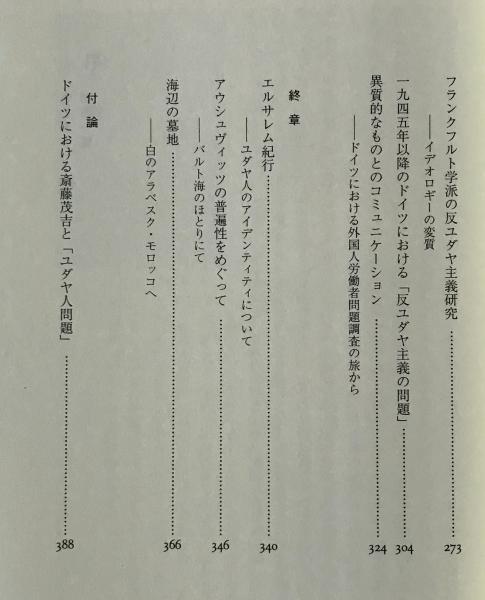 フランクフルト学派の反ユダヤ主義研究……………273
――イデオロギーの変質
一九四五年以降のドイツにおける「反ユダヤ主義の問題」……………304
異質的なものとのコミュニケーション……………324
――ドイツにおける外国人労働者問題調査の旅から
終章
エルサレム紀行……………340
――ユダヤ人のアイデンティティについて
アウシュヴィッツの普遍性をめぐって……………346
――バルト海のほとりにて
海辺の墓地……………366
――白のアラベスク・モロッコへ
付論
ドイツにおける斎藤茂吉と「ユダヤ人問題」……………388